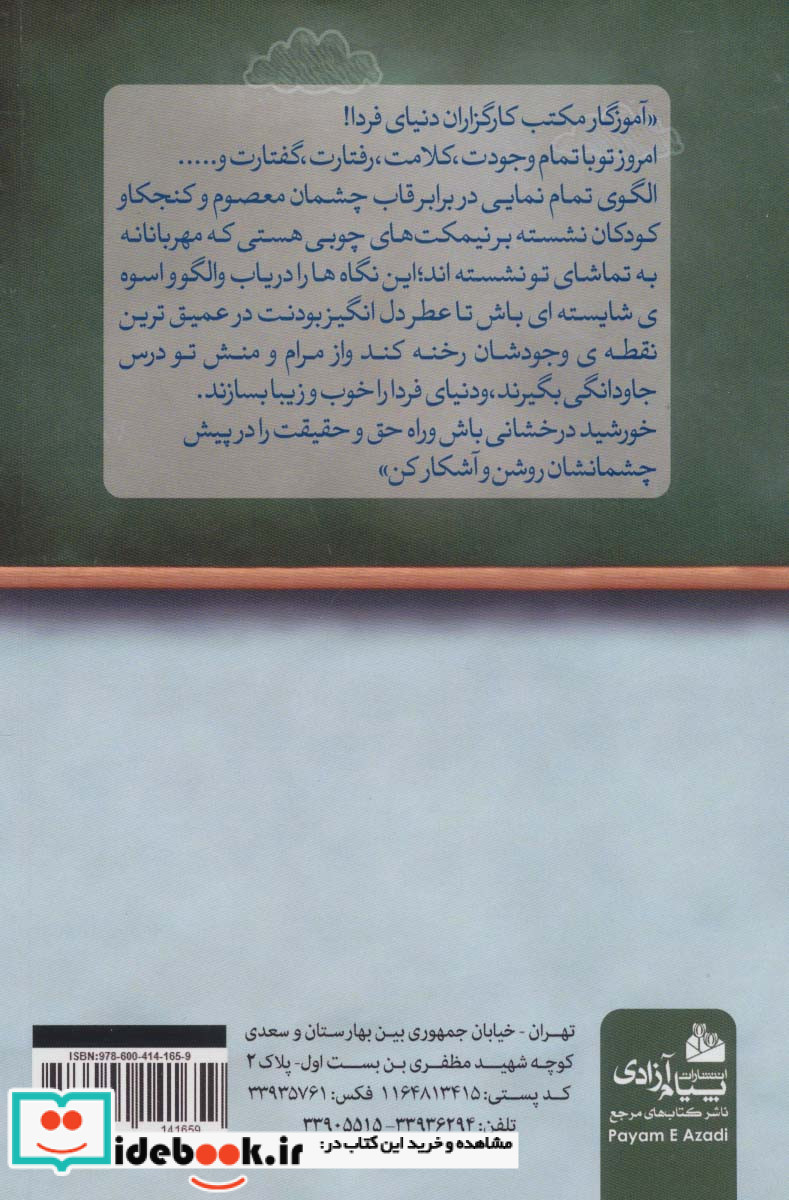 «آموزگار مکتب کارگزاران دنیای فردا!
امروز تو با تمام وجودت، کلامت، رفتارت، گفتارت و.....
الگوی تمام نمایی در برابر قاب چشمان معصوم و کنجکاو
کودکان نشسته بر نیمکت‌های چوبی هستی که مهربانانه
به تماشای تو نشسته اند؛ این نگاه ها را دریاب والگو و اسوه
ی شایسته ای باش تا عطر دل انگیز بودنت در عمیق ترین
نقطه ی وجودشان رخنه کند واز مرام و منش تو درس
جاودانگی بگیرند، ودنیای فردا را خوب و زیبا بسازند.
خورشید درخشانی باش وراه حق و حقیقت را در پیش
چشمانشان روشن و آشکار کن»
تهران - خیابان جمهوری بین بهارستان و سعدی
کوچه شهید مظفری بن بست اول- پلاک ۲
کد پستی: ۱۱۶۴۸۱۳۴۱۵ فکس: ۳۳۹۳۵۷۶۱
تلفن: ۳۳۹۳۶۲۹۴- ۳۳۹۰۵۵۱۵
انتشارات
پیام آزادی
ناشر کتاب‌های مرجع
Payam E Azadi
ISBN:978-600-414-165-9
141659
مشاهده و خرید این کتاب در:
idebook.ir